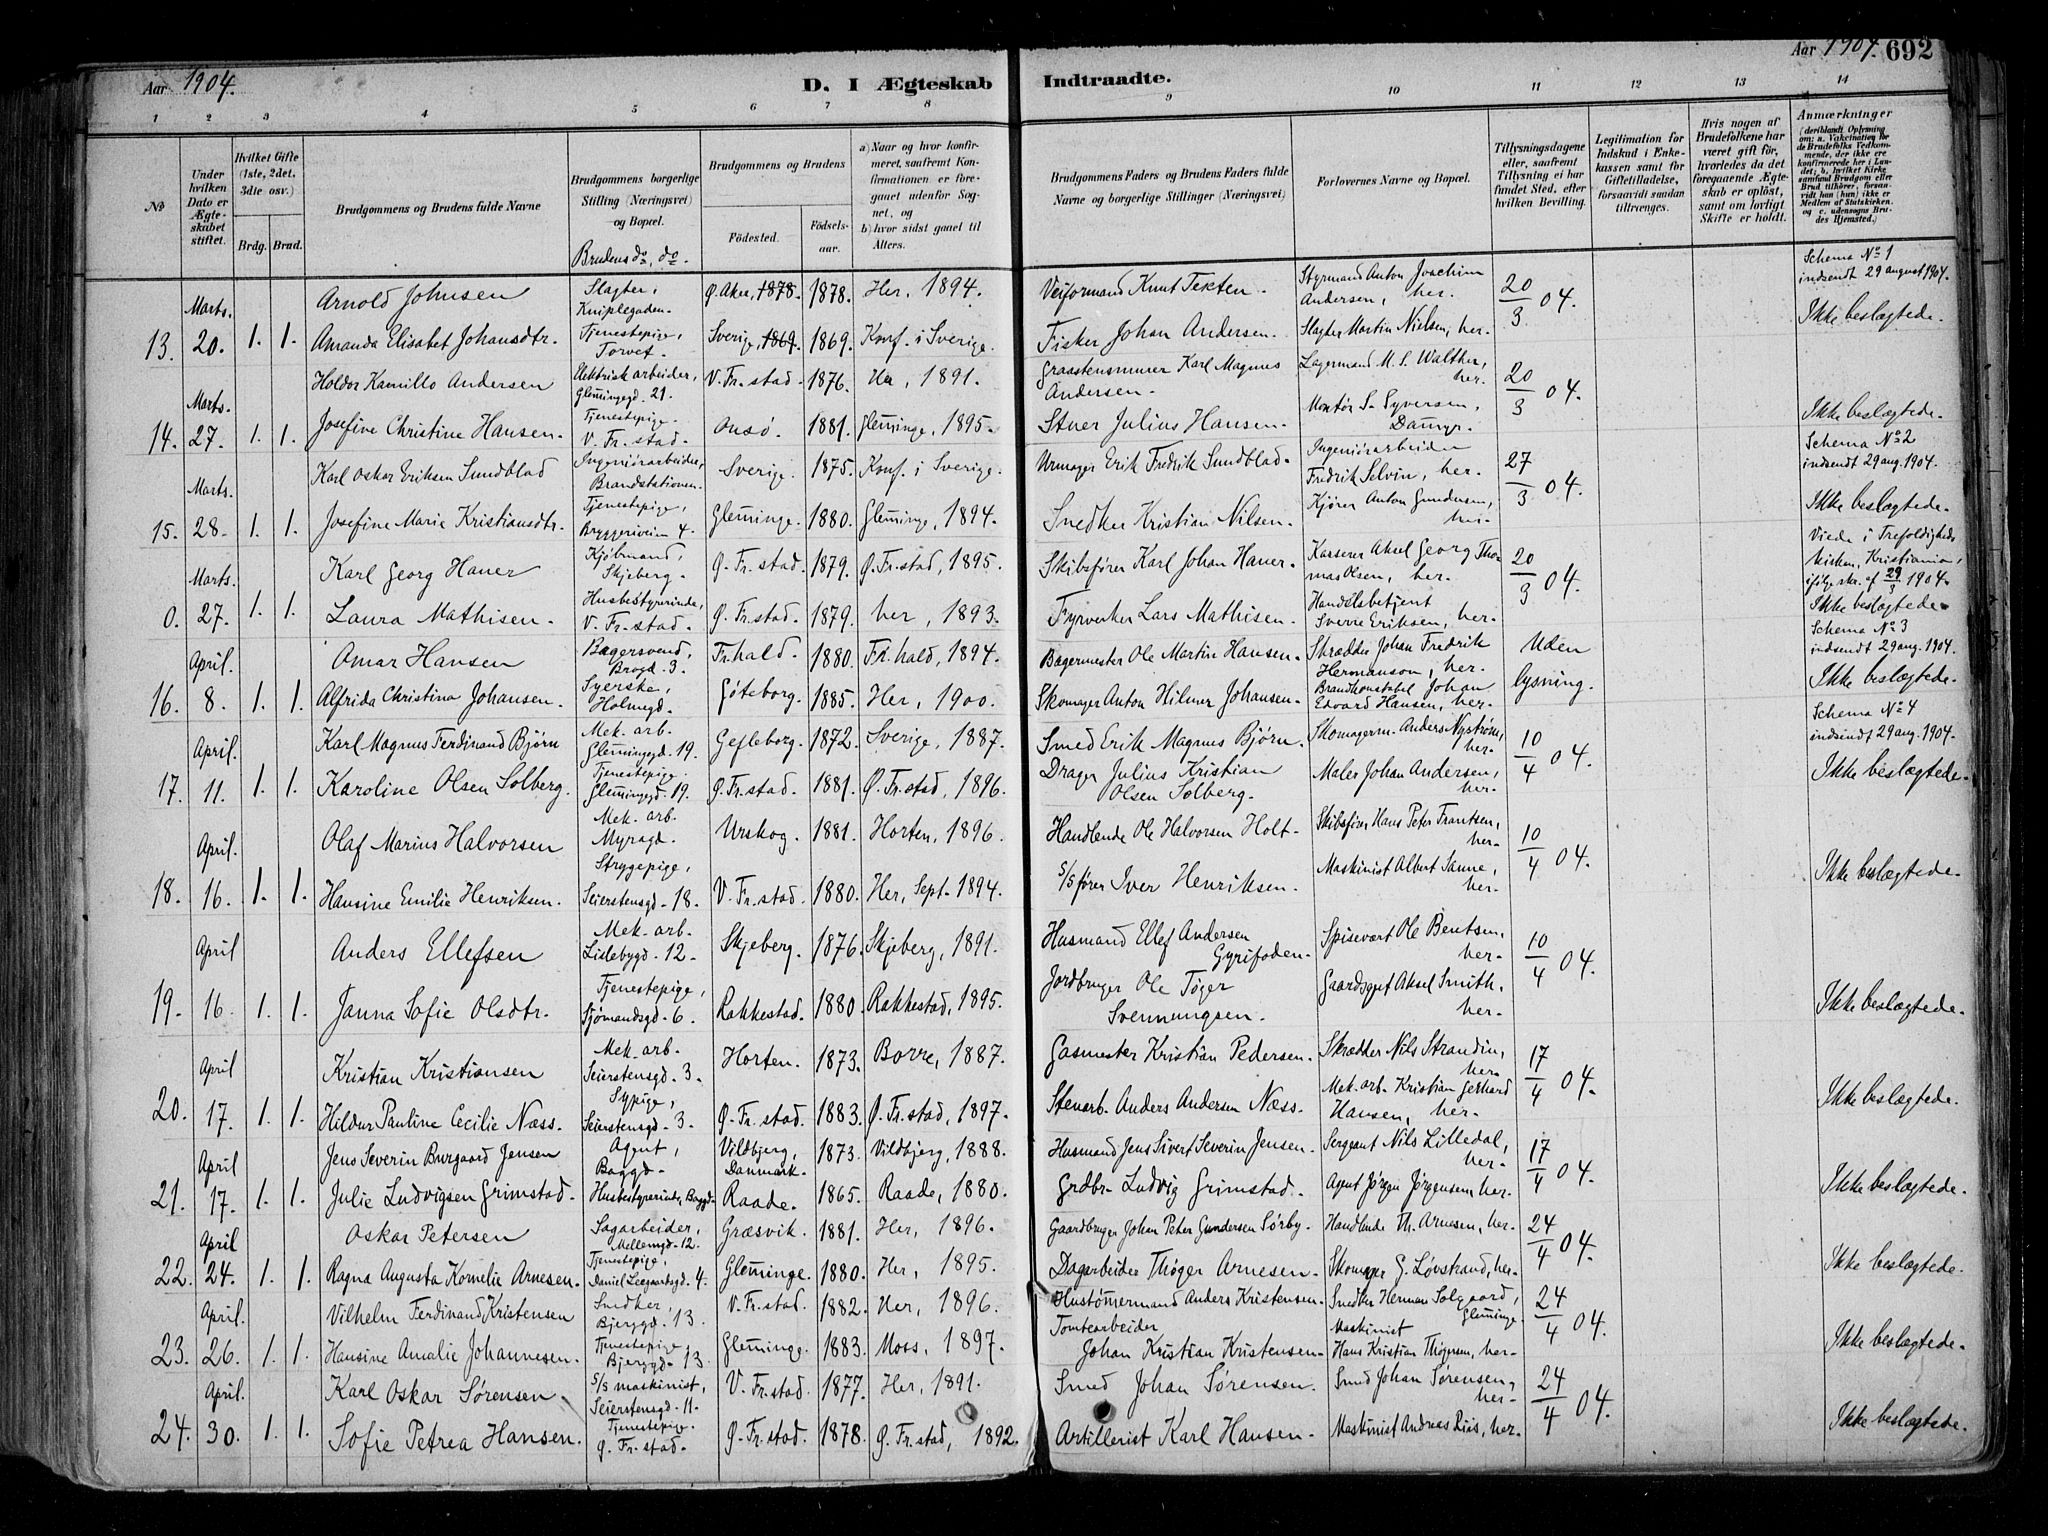 Aar 1904.
D. I Ægteskab Indtraadte.
Aar 1904. 692
1 2 3 4 5 6 7 8 9 10 11 12 13 14
No
Under hvilken Dato er Ægteskabet stiftet.
Hvilket Gifte (1ste, 2det, 3die osv.)
Brdg. Brud.
Brudgommens og Brudens fulde Navne
Brudgommens borgerlige Stilling (Næringsvei) og Bopæl.
Brudens do, do.
Brudgommens og Brudens
Fødested. Fødselsaar.
a) Naar og hvor konfirmeret, saafremt Konfirmationen er foregaaet udenfor Sognet, og
b) hvor sidst gaaet til Alters.
Brudgommens Faders og Brudens Faders fulde Navne og borgerlige Stillinger (Næringsvei)
Forlovernes Navne og Bopæl.
Tillysningsdagene eller, saafremt Tillysning ei har fundet Sted, efter hvilken Bevilling.
Legitimation for Indskud i Enkekassen samt for Giftetilladelse, forsaavidt saadan tiltrænges.
Hvis nogen af Brudefolkene har været gift før, hvorledes da det foregaaende Ægteskab er opløst, samt om lovligt Skifte er holdt.
Anmærkninger
(deriblandt Oplysning om: a. Vakcination for de Brudefolks Vedkommende, der ikke ere konfirmerede her i Landet; b. hvilket Kirkesamfund Brudgom eller Brud tilhører, forsaavidt han (hun) ikke er Medlem af Statskirken, og c. udensogns Brudes Hjemsted.)
Marts. Arnold Johnsen Slagter, Kniplegaden. Ø. Aker, 1878. 1878. Her, 1894. Veiformand Knut Tekten. Styrmand Anton Joachim Andersen, her. 20/3 04. Schema No 1 indsendt 29 august 1904.
13. 20. 1. 1. Amanda Elisabet Johansdtr. Tjenestepige, Torvet. Sverige, 1869. 1869. Konf. i Sverige. Fisker Johan Andersen. Slagter Martin Nielsen, her. Ikke beslægtede.
Marts. Holdor Kamillo Andersen Elektrisk arbeider, Glemingegd. 21. V. Fr. stad. 1876. Her, 1891. Graastensmurer Karl Magnus Andersen. Lagermand M. S. Walther, her. 20/3 04.
14. 27. 1. 1. Josefine Christine Hansen. Tjenestepige. V. Fr. stad. Onsø. 1881. Gleminge, 1895. Stuer Julius Hansen. Montør S. Syversen, Ikke beslægtede.
Marts. Karl Oskar Eriksen Sundblad Ingeniørarbeider, Brandstationen. Sverige. 1875. Konf. i Sverige. Urmager Erik Fredrik Sundblad. Ingeniørarbeider Fredrik Selvin, her. 27/3 04. Schema No 2 indsendt 29 aug. 1904.
15. 28. 1. 1. Josefine Marie Kristiansdtr. Tjenestepige, Bryggeriveien 4. Gleminge. 1880. Gleminge, 1894. Snedker Kristian Nilsen. Kjører Anton Gundersen, her. Ikke beslægtede.
Marts. Karl Georg Hauer Kjøbmand, Skjeberg. Ø. Fr. stad. 1879. Ø. Fr. stad, 1895. Skibsfører Karl Johan Hauer. Kasserer Aksel Georg Thomas Olsen, her. 20/3 04. Viede i Trefoldigheds kirken, Kristiania, ifølge skr. af 29/3 1904.
0. 27. 1. 1. Laura Mathisen. Husbestyrerinde, V. Fr. stad. Ø. Fr. stad. 1879. her, 1893. Fyrverker Lars Mathisen. Handelsbetjent Sverre Eriksen, her. Ikke beslægtede.
April. Omar Hansen Bagersvend, Brogd. 3. Fr. hald. 1880. Fr. hald, 1894. Bagermester Ole Martin Hansen. Skrædder Johan Fredrik Hermanson, her. Uden lysning. Schema No 3 indsendt 29 aug. 1904.
16. 8. 1. 1. Alfrida Christina Johansen. Syerske, Holmegd. Göteborg. 1885. Her, 1900. Skomager Anton Hilmer Johansen. Brandkonstabel Johan Edvard Hansen, her. Ikke beslægtede.
April. Karl Magnus Ferdinand Bjørn Mek. arb. Glemingegd. 19. Gefleborg. 1872. Sverige, 1887. Smed Erik Magnus Bjørn. Skomagerm. Anders Nystrøm, her. 10/4 04. Schema No 4 indsendt 29 aug. 1904.
17. 11. 1. 1. Karoline Olsen Solberg. Tjenestepige. Glemingegd. 19. Ø. Fr. stad. 1881. Ø. Fr. stad, 1896. Drager Julius Kristian Olsen Solberg. Maler Johan Andersen, her. Ikke beslægtede.
April. Olaf Marius Halvorsen Mek. arb. Myragd. Urskog. 1881. Horten, 1896. Handlende Ole Halvorsen Holt. Skibsfører Hans Peter Frantsen, her. 10/4 04.
18. 16. 1. 1. Hansine Emilie Henriksen. Strygepige, Seierstensgd. 18. V. Fr. stad. 1880. Her, Sept. 1894. S/S fører Iver Henriksen. Maskinist Albert Sanne, her. Ikke beslægtede.
April Anders Ellefsen Mek. arb. Lislebygd. 12. Skjeberg. 1876. Skjeberg, 1891. Husmand Ellef Andersen Spisevært Ole Bentsen, her. 10/4 04.
19. 16. 1. 1. Janna Sofie Olsdtr. Tjenestepige, Sjømandsgd. 6. Rakkestad. 1880. Rakkestad, 1895. Jordbruger Ole Tøger Svennungsen. Gaardsgut Aksel Smith, her. Ikke beslægtede.
April Kristian Kristiansen Mek. arb. Seierstensgd. 3. Horten. 1873. Borre, 1887. Gasmester Kristian Pedersen. Skrædder Nils Strandin, her. 17/4 04.
20. 17. 1. 1. Hildur Pauline Cecilie Næss. Sypige, Seierstensgd. 3. Ø. Fr. stad. 1883. Ø. Fr. stad, 1897. Stenarb. Anders Andersen Næss. Mek. arb. Kristian Gerhard Hansen, her. Ikke beslægtede.
April Jens Severin Burgaard Jensen Agent, Baggd. Vildbjerg, Danmark. 1873. Vildbjerg, 1888. Husmand Jens Sivert Severin Jensen. Sergeant Nils Lilledal, her. 17/4 04.
21. 17. 1. 1. Julie Ludvigsen Grimstad. Husbestyrerinde, Baggd. Raade. 1865. Raade, 1880. Grdbr. Ludvig Grimstad. Agent Jørgen Jørgensen, her. Ikke beslægtede.
April Oskar Petersen Sagarbeider, Mellemgd. 12. Græsvik. 1881. Her, 1896. Gaardbruger Johan Peter Gundersen Sørby. Handlende Th. Arnesen, her. 24/4 04.
22. 24. 1. 1. Ragna Augusta Kornelie Arnesen. Tjenestepige, Daniel Leegaardsgd. 4. Gleminge. 1880. Her, 1895. Dagarbeider Thøger Arnesen. Skomager G. Løvstrand, her. Ikke beslægtede.
April. Vilhelm Ferdinand Kristensen Snedker, Bjerggd. 13. V. Fr. stad. 1882. Her, 1896. Hustømmermand Anders Kristensen. Snedker Herman Solgaard, Gleminge. 24/4 04.
23. 26. 1. 1. Hansine Amalie Johannesen. Tjenestepige Bjerggd. 13. Gleminge. 1883. Moss, 1897. Tomtearbeider Johan Kristian Kristensen. Maskinist Hans Kristian Thøgersen, her. Ikke beslægtede.
April. Karl Oskar Sørensen S/S maskinist, Seierstensgd. 11. V. Fr. stad. 1877. Her, 1891. Smed Johan Sørensen. Smed Johan Sørensen, her. 24/4 04.
24. 30. 1. 1. Sofie Petrea Hansen. Tjenestepige. Ø. Fr. stad. Ø. Fr. stad. 1878. Ø. Fr. stad, 1892. Artillerist Karl Hansen. Maskinist Andreas Riis, her. Ikke beslægtede.